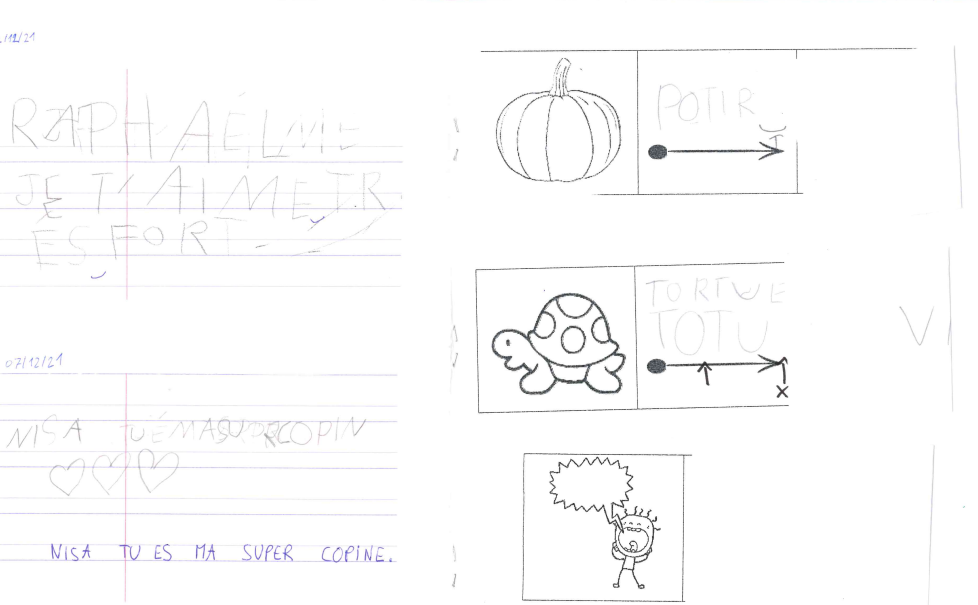 /12/21
RAPHAÉL
JE T'AIME TR
ÉS FORT
07/12/21
NISA TU ÉMASUPERCOPIN
NISA TU ES MA SUPER COPINE.
POTIR
TORTUE
TOTU
X
V